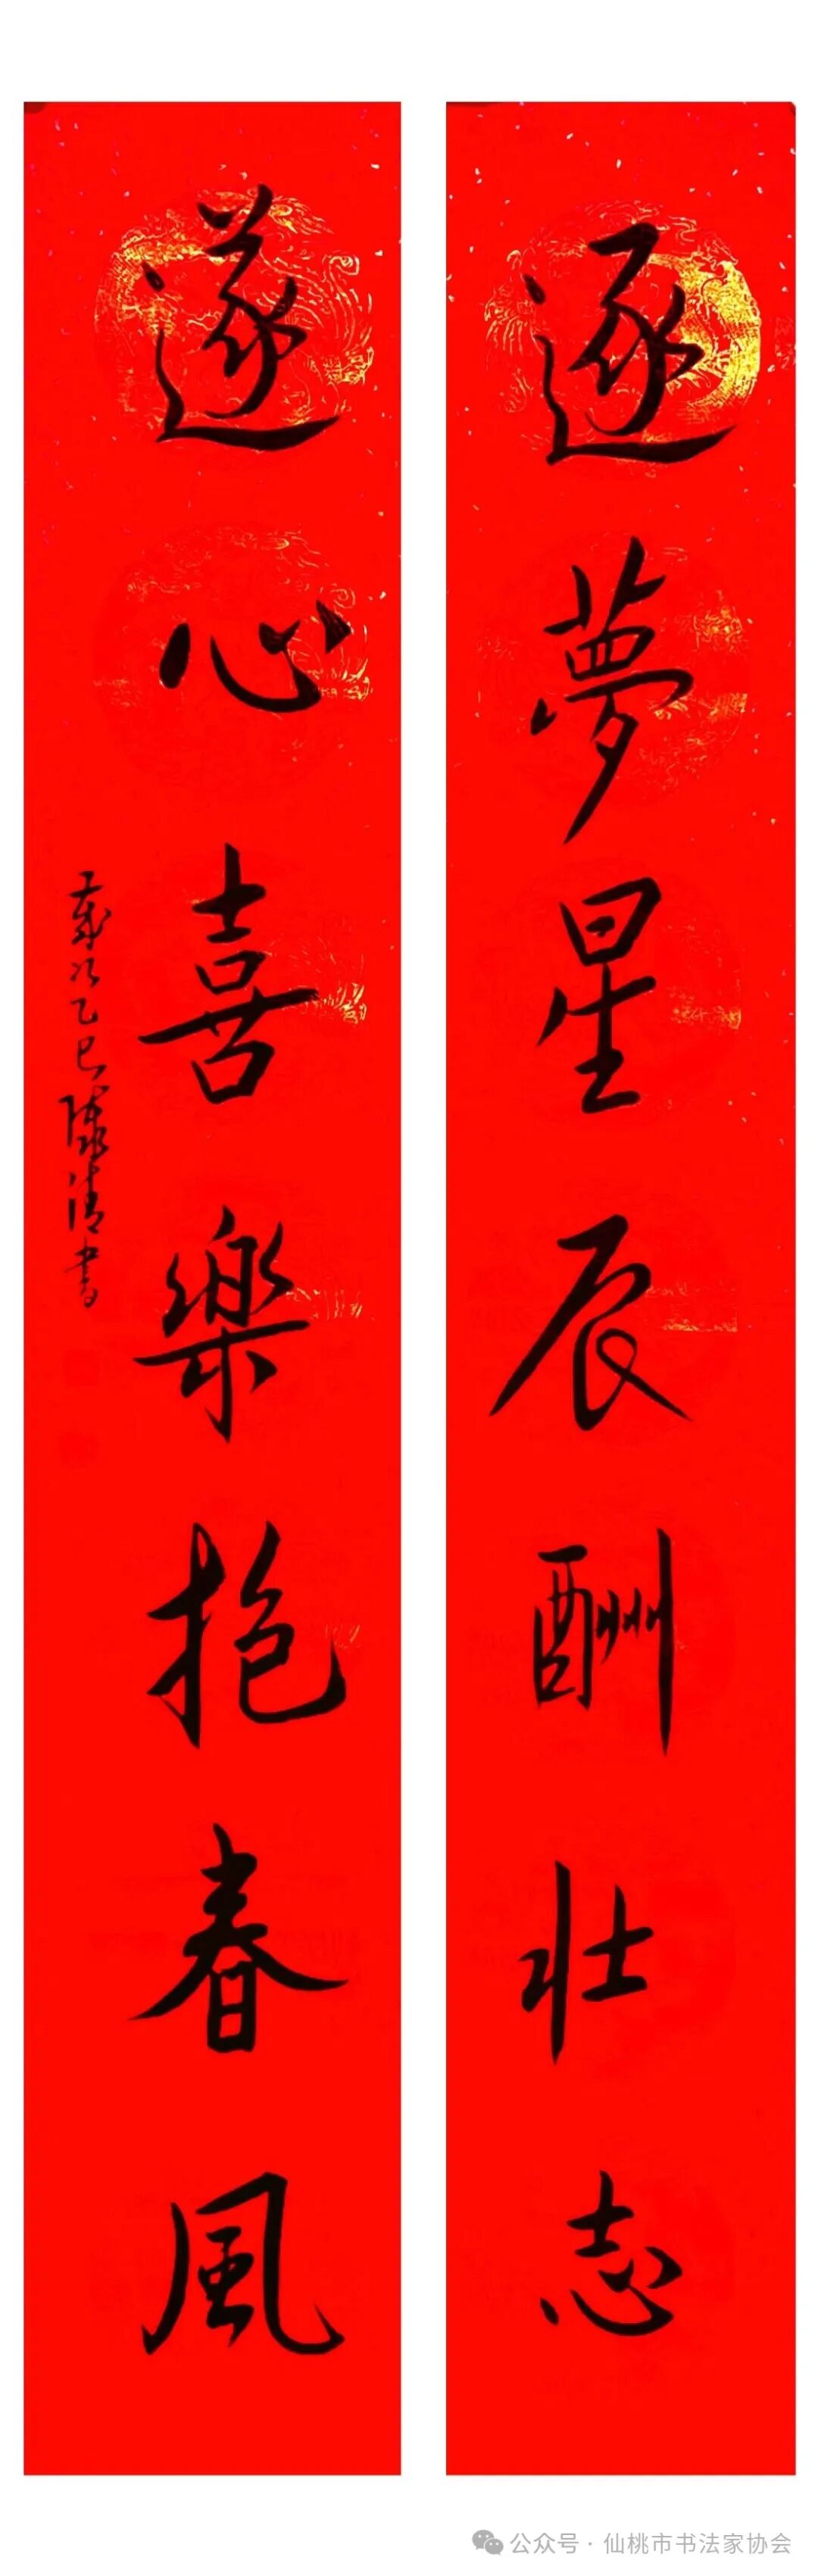 逐夢星辰酬壯志
遂心喜樂抱春風
歲次乙巳陳清書
公众号 · 仙桃市书法家协会